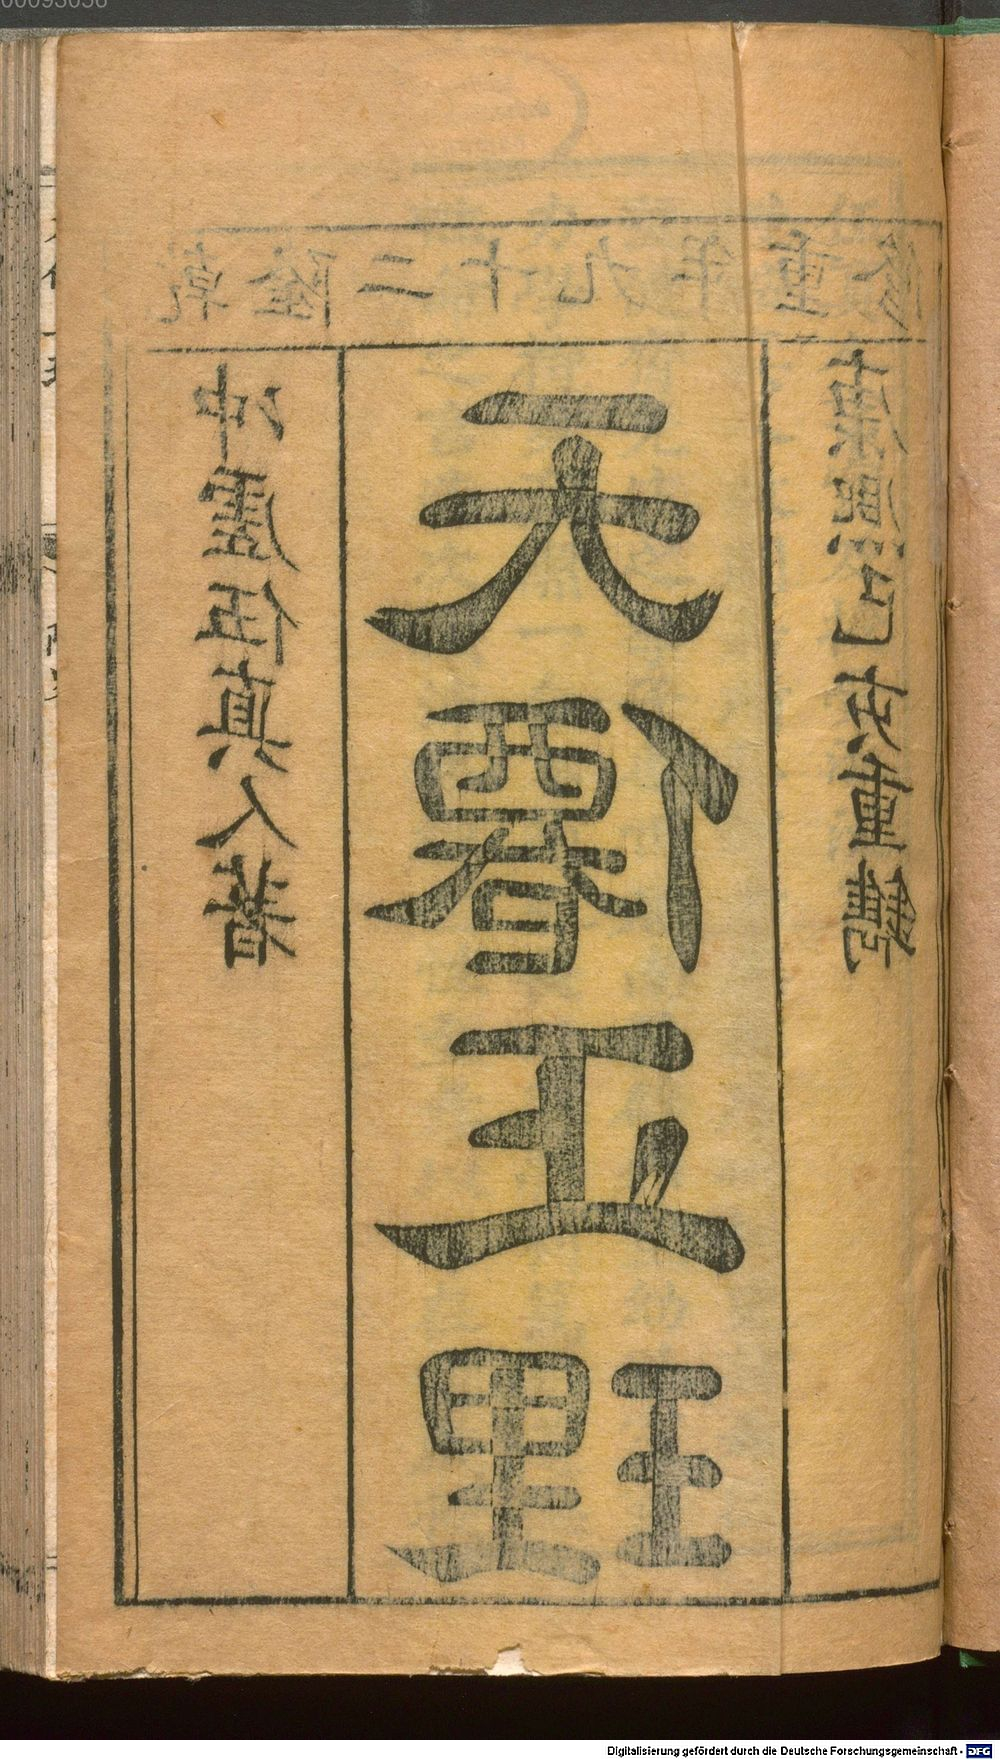 乾隆二十九年重修
冲虛伍真人著
天僊正理
康熙己重鐫
00093036
Digitalisierung gefördert durch die Deutsche Forschungsgemeinschaft - DFG